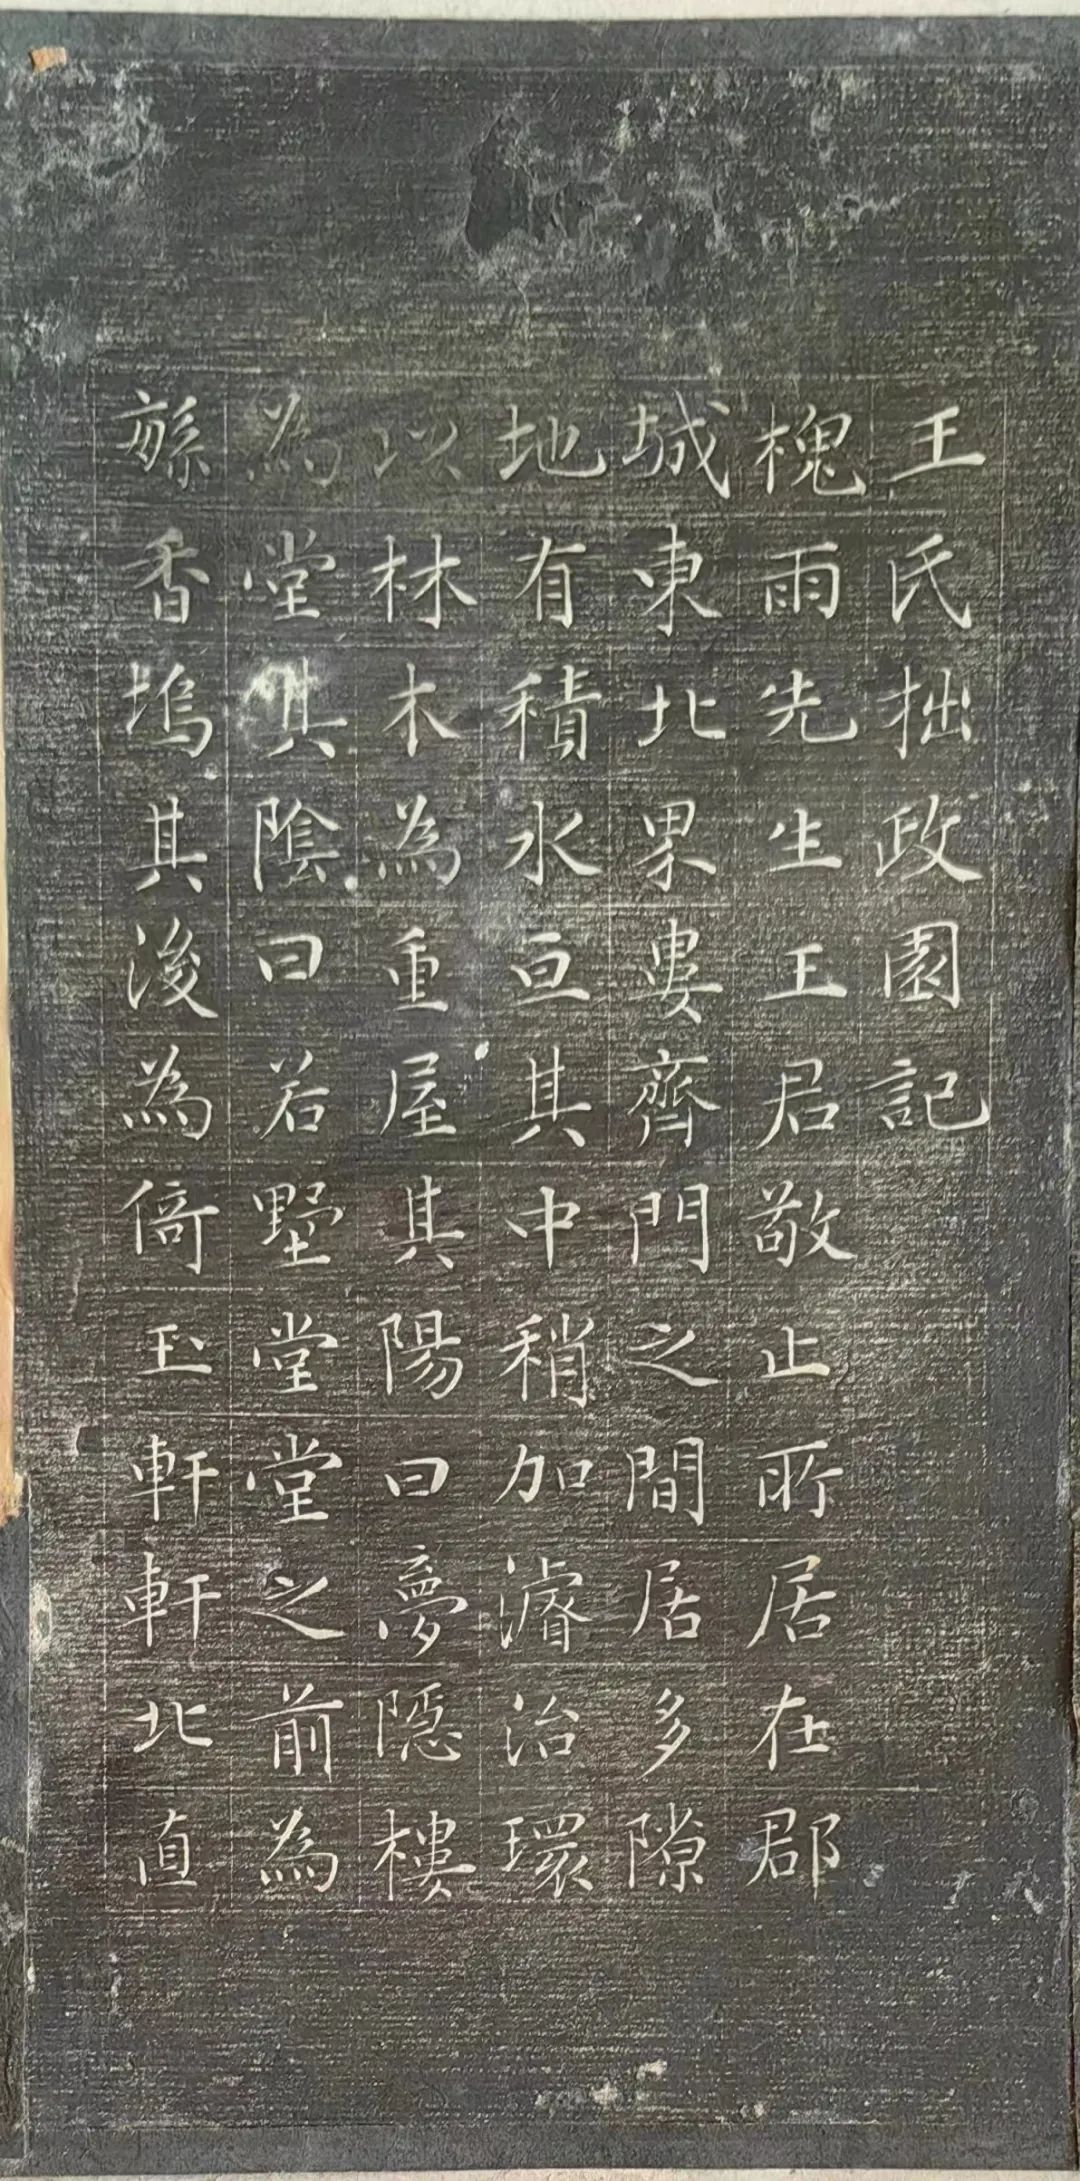 王氏拙政園記
槐雨先生王君敬止所居在郡
城東北界婁齊門之間居多隙
地有積水亘其中稍加濬治環
以林木為重屋其陽曰夢隱樓
為堂其陰曰若墅堂堂之前為
繁香塢其後為倚玉軒軒北直